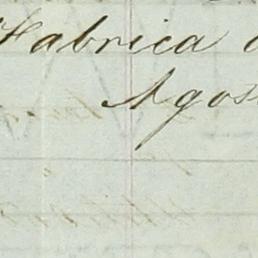 Fabrica
Agos